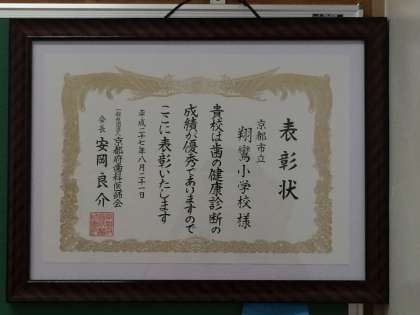 表彰状
京都市立
翔鸞小学校様
貴校は歯の健康診断の
成績が優秀でありますので
ここに表彰いたします
平成二十七年八月二十一日
一般社団法人京都府歯科医師会
会長 安岡良介